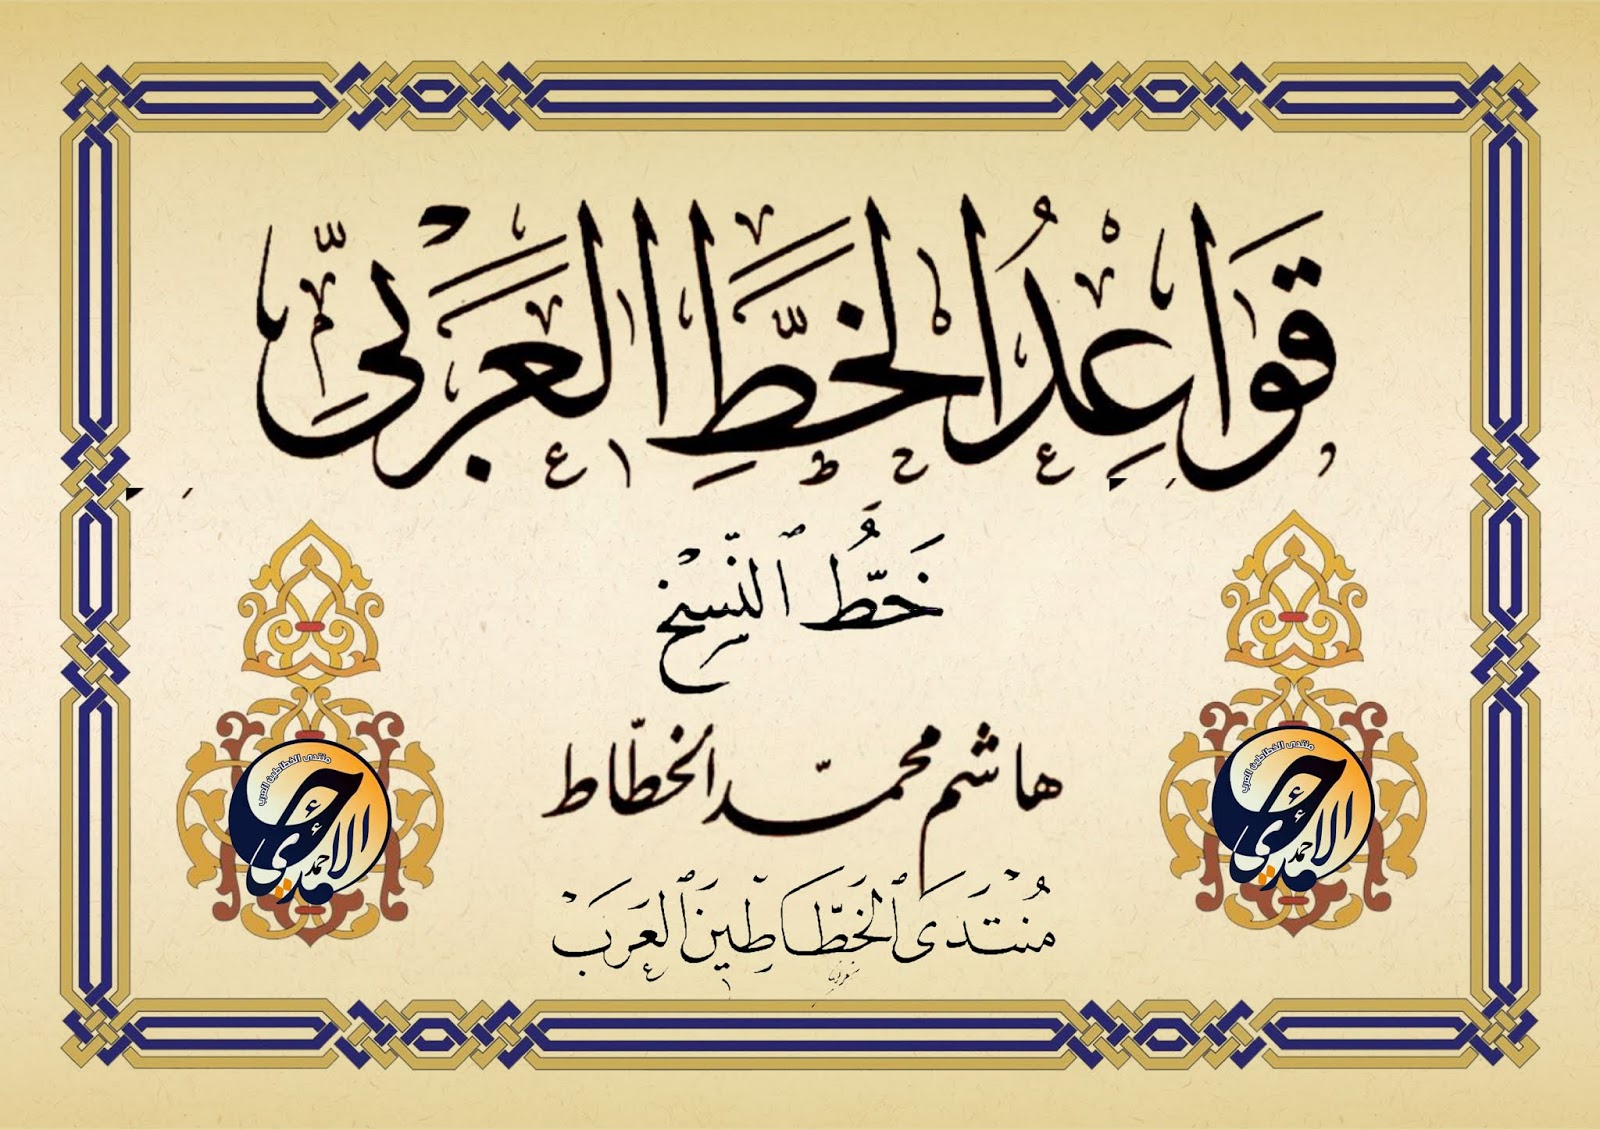 قَوَاعِدُ الخَطِّ العَرَبِيِّ
خَطُّ ٱلنَّسْخِ
هاشم محمّد الخطّاط
مُنْتَدَى ٱلخَطَّاطِينَ ٱلعَرَبْ
منتدى الخطاطين العرب
الأحمدي
منتدى الخطاطين العرب
الأحمدي